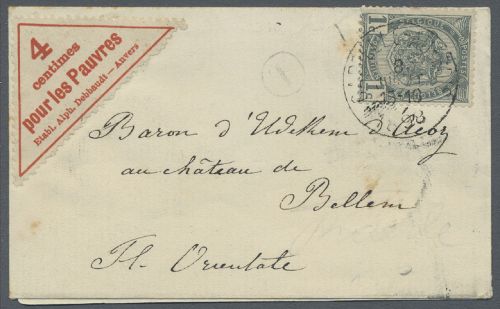 4
centimes
pour les Pauvres
Etabl. Alph. Debbaudt - Anvers
BELGIQUE
1 1
BELGIË
Baron d'Udekem d'Acoz
au château de
Bellem
Fl. Orientale